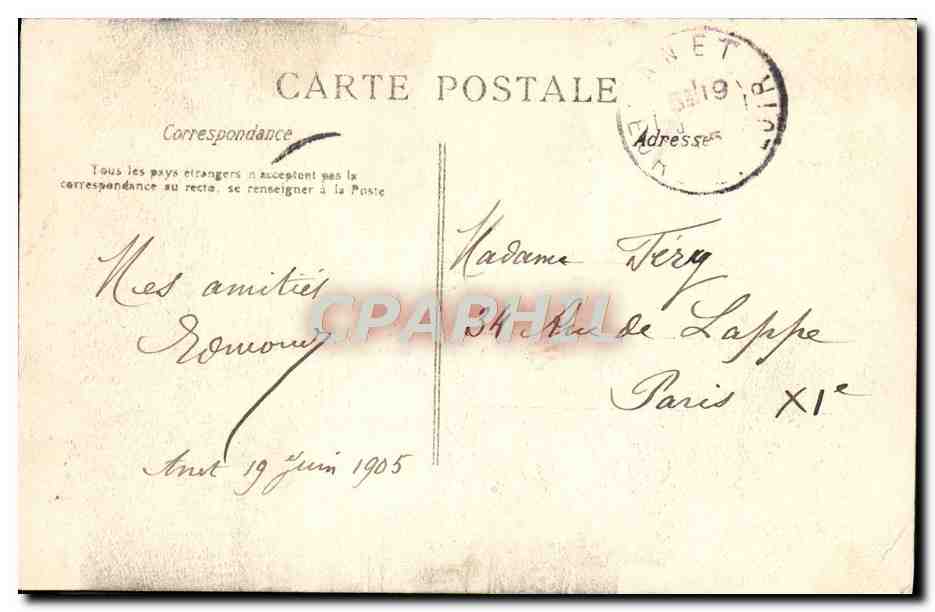 CARTE POSTALE
Correspondance
Tous les pays étrangers n'acceptent pas la
correspondance au recto, se renseigner à la Poste
Mes amitiés
Edmond
Anet 19 Juin 1905
ANET
19
EURE
LOIR
Adresse
Madame Féry
34 Rue de Lappe
Paris XIe
CPAPHIL